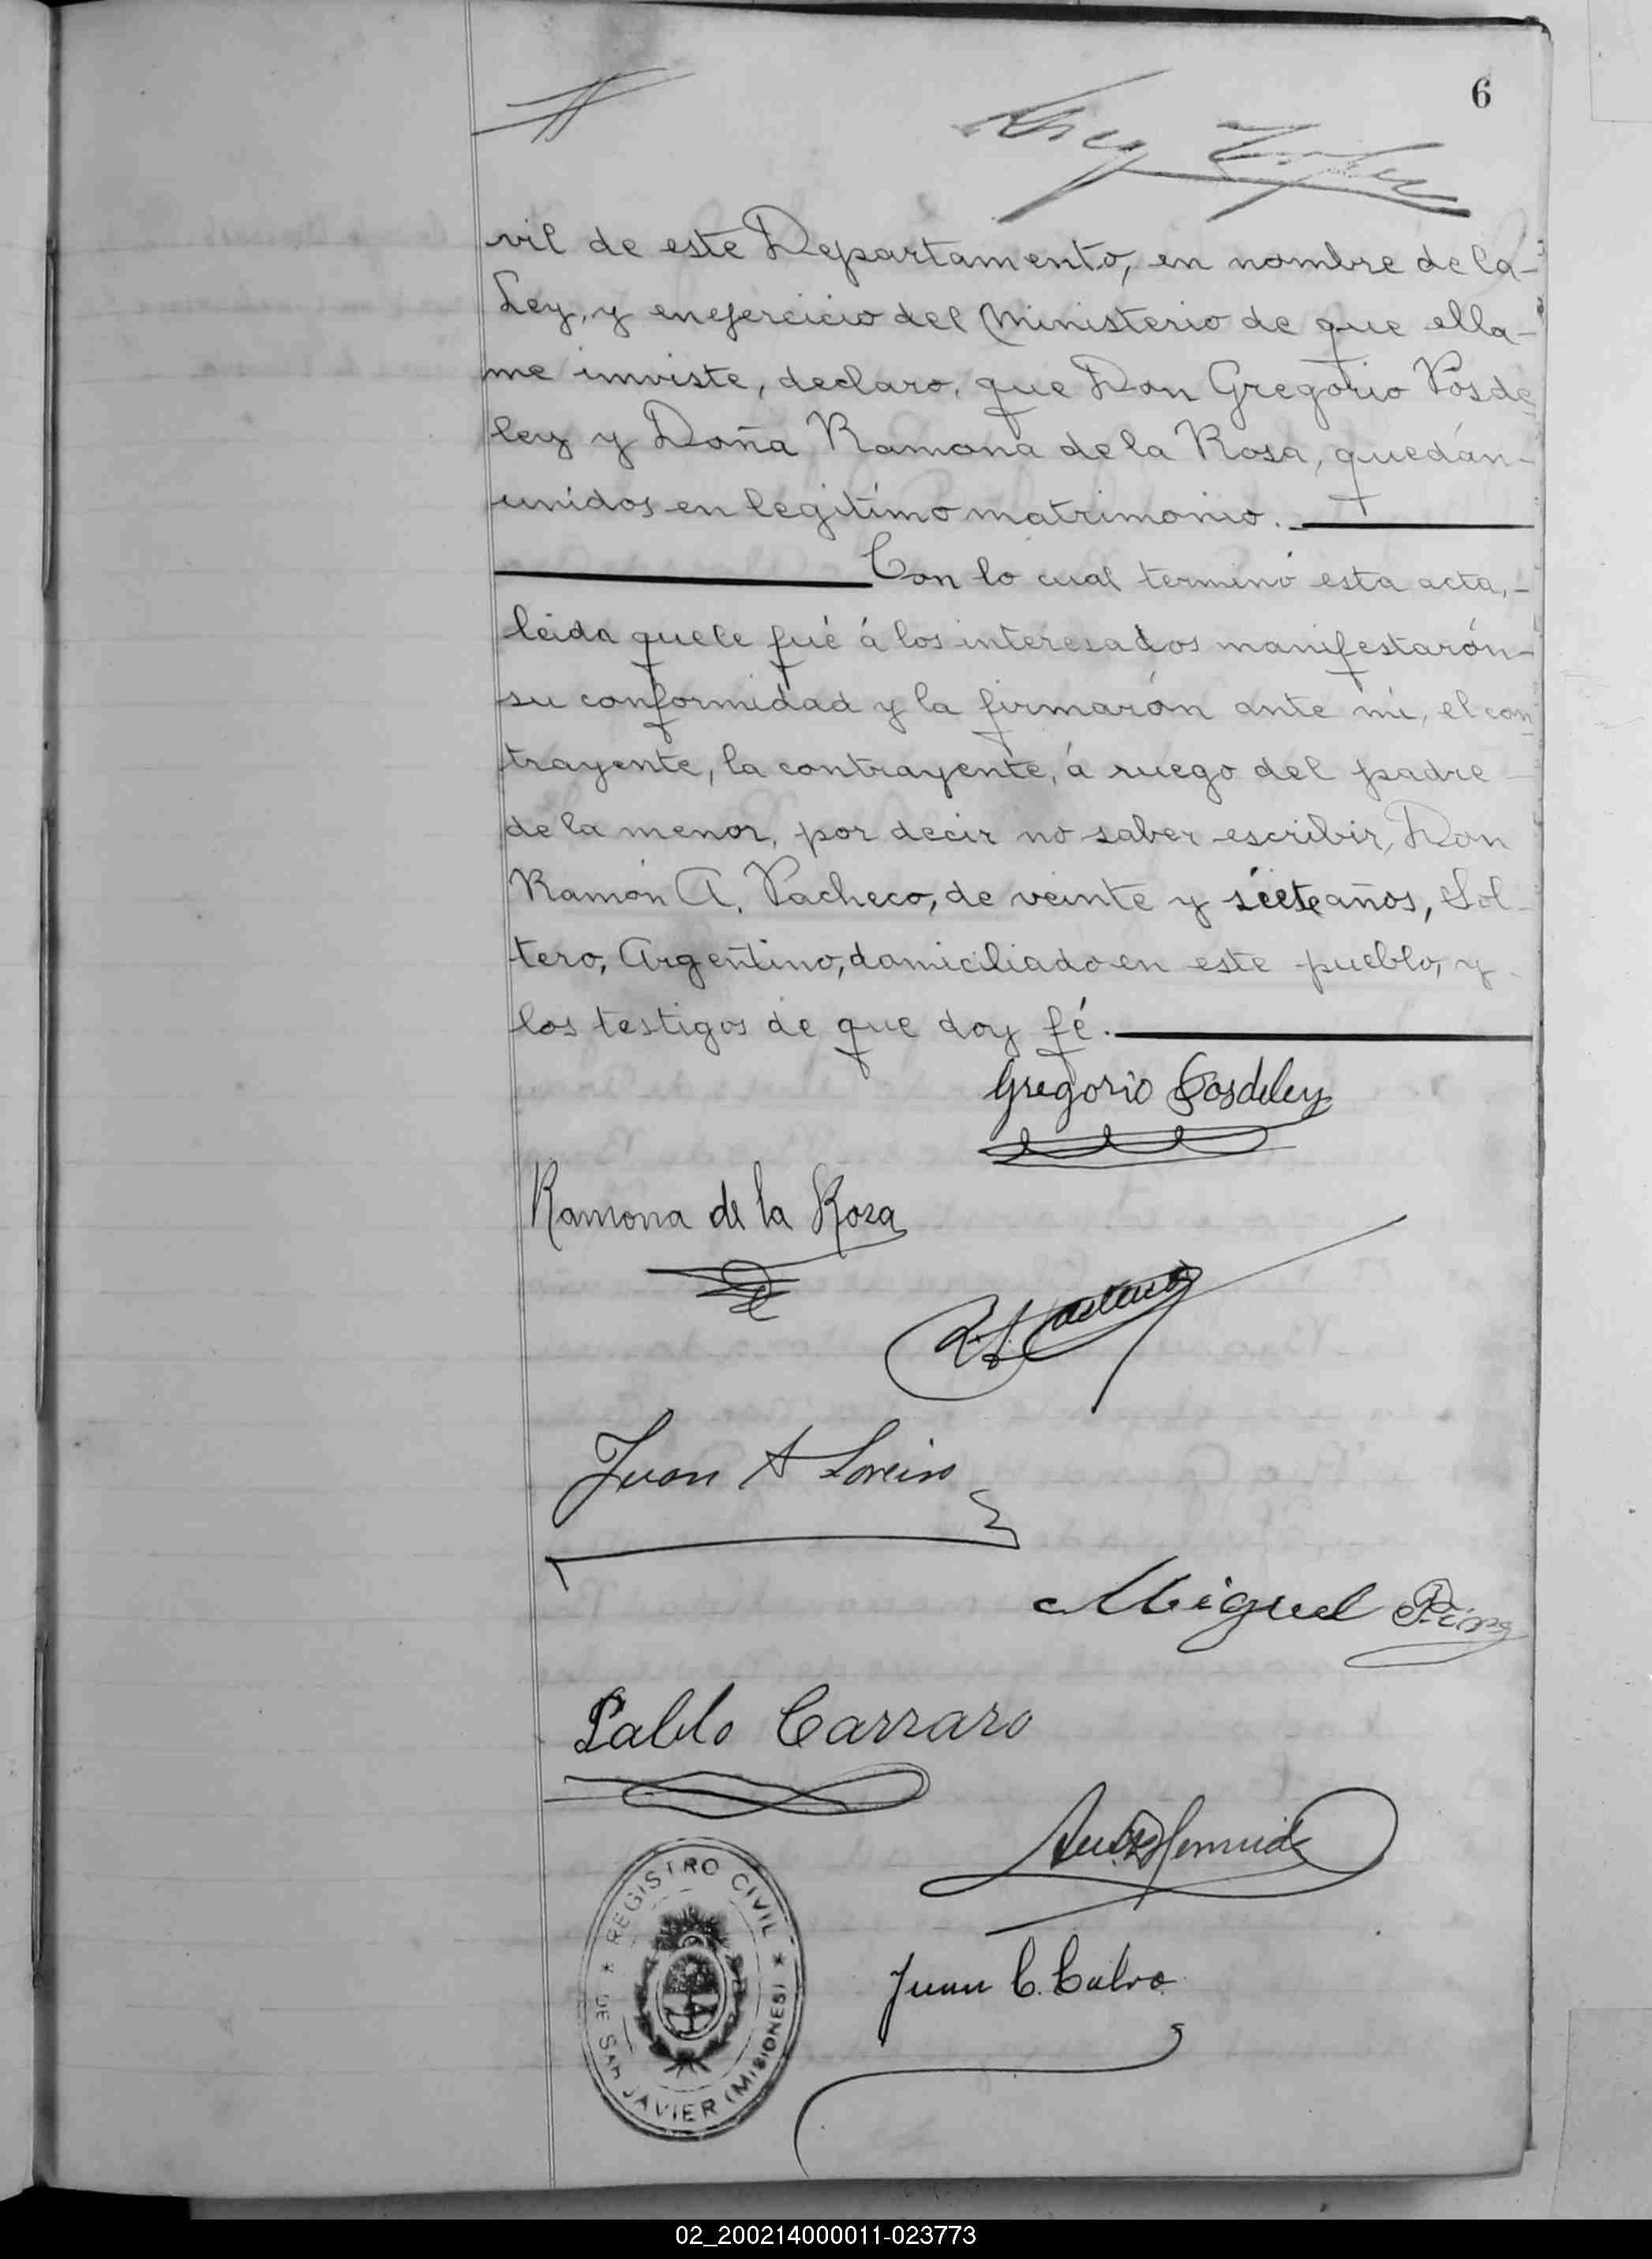 6
vil de este Departamento, en nombre de la-
Ley, y en ejercicio del Ministerio de que ella-
me imviste, declaro, que Don Gregorio Posde
ley y Doña Ramona de la Rosa, quedán-
unidos en legítimo matrimonio.
Con lo cual terminó esta acta,-
leida quele fué á los interesados manifestarón-
su conformidad y la firmarón ante mi, el con
trayente, la contrayente, á ruego del padre
de la menor, por decir no saber escribir, Don
Ramón A. Pacheco, de veinte y siete años, Sol-
tero, Argentino, domiciliado en este pueblo, y
los testigos de que doy fé.
Gregorio Posdeley
Ramona de la Rosa
Juan A
Miguel
Pablo Carraro
Juan C. Calvo
REGISTRO CIVIL
* DE SAN JAVIER (MISIONES) *
02_200214000011-023773